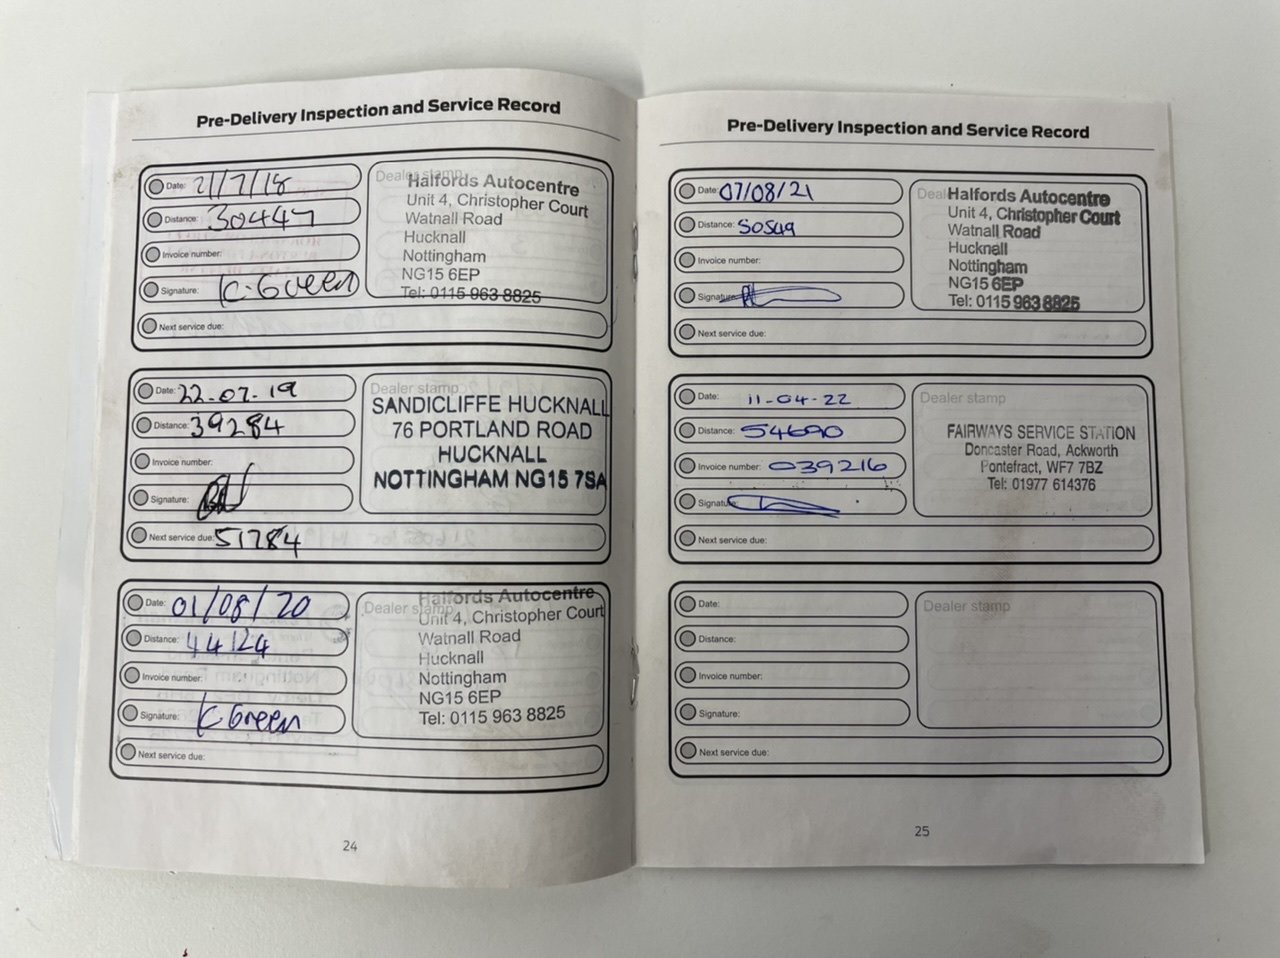 Pre-Delivery Inspection and Service Record
Date: 21/7/18
Distance: 30447
Invoice number:
Signature: K. Green
Next service due:
Dealer stamp
Halfords Autocentre
Unit 4, Christopher Court
Watnall Road
Hucknall
Nottingham
NG15 6EP
Tel: 0115 963 8825
Date: 22-07-19
Distance: 39284
Invoice number:
Signature:
Next service due: 51284
Dealer stamp
SANDICLIFFE HUCKNALL
76 PORTLAND ROAD
HUCKNALL
NOTTINGHAM NG15 7SA
Date: 01/08/20
Distance: 44124
Invoice number:
Signature: K Green
Next service due:
Dealer stamp
Halfords Autocentre
Unit 4, Christopher Court
Watnall Road
Hucknall
Nottingham
NG15 6EP
Tel: 0115 963 8825
24
Pre-Delivery Inspection and Service Record
Date: 07/08/21
Distance: 50549
Invoice number:
Signature:
Next service due:
Deal
Halfords Autocentre
Unit 4, Christopher Court
Watnall Road
Hucknall
Nottingham
NG15 6EP
Tel: 0115 963 8825
Date: 11-04-22
Distance: 54690
Invoice number: 039216
Signature:
Next service due:
Dealer stamp
FAIRWAYS SERVICE STATION
Doncaster Road, Ackworth
Pontefract, WF7 7BZ
Tel: 01977 614376
Date:
Distance:
Invoice number:
Signature:
Next service due:
Dealer stamp
25